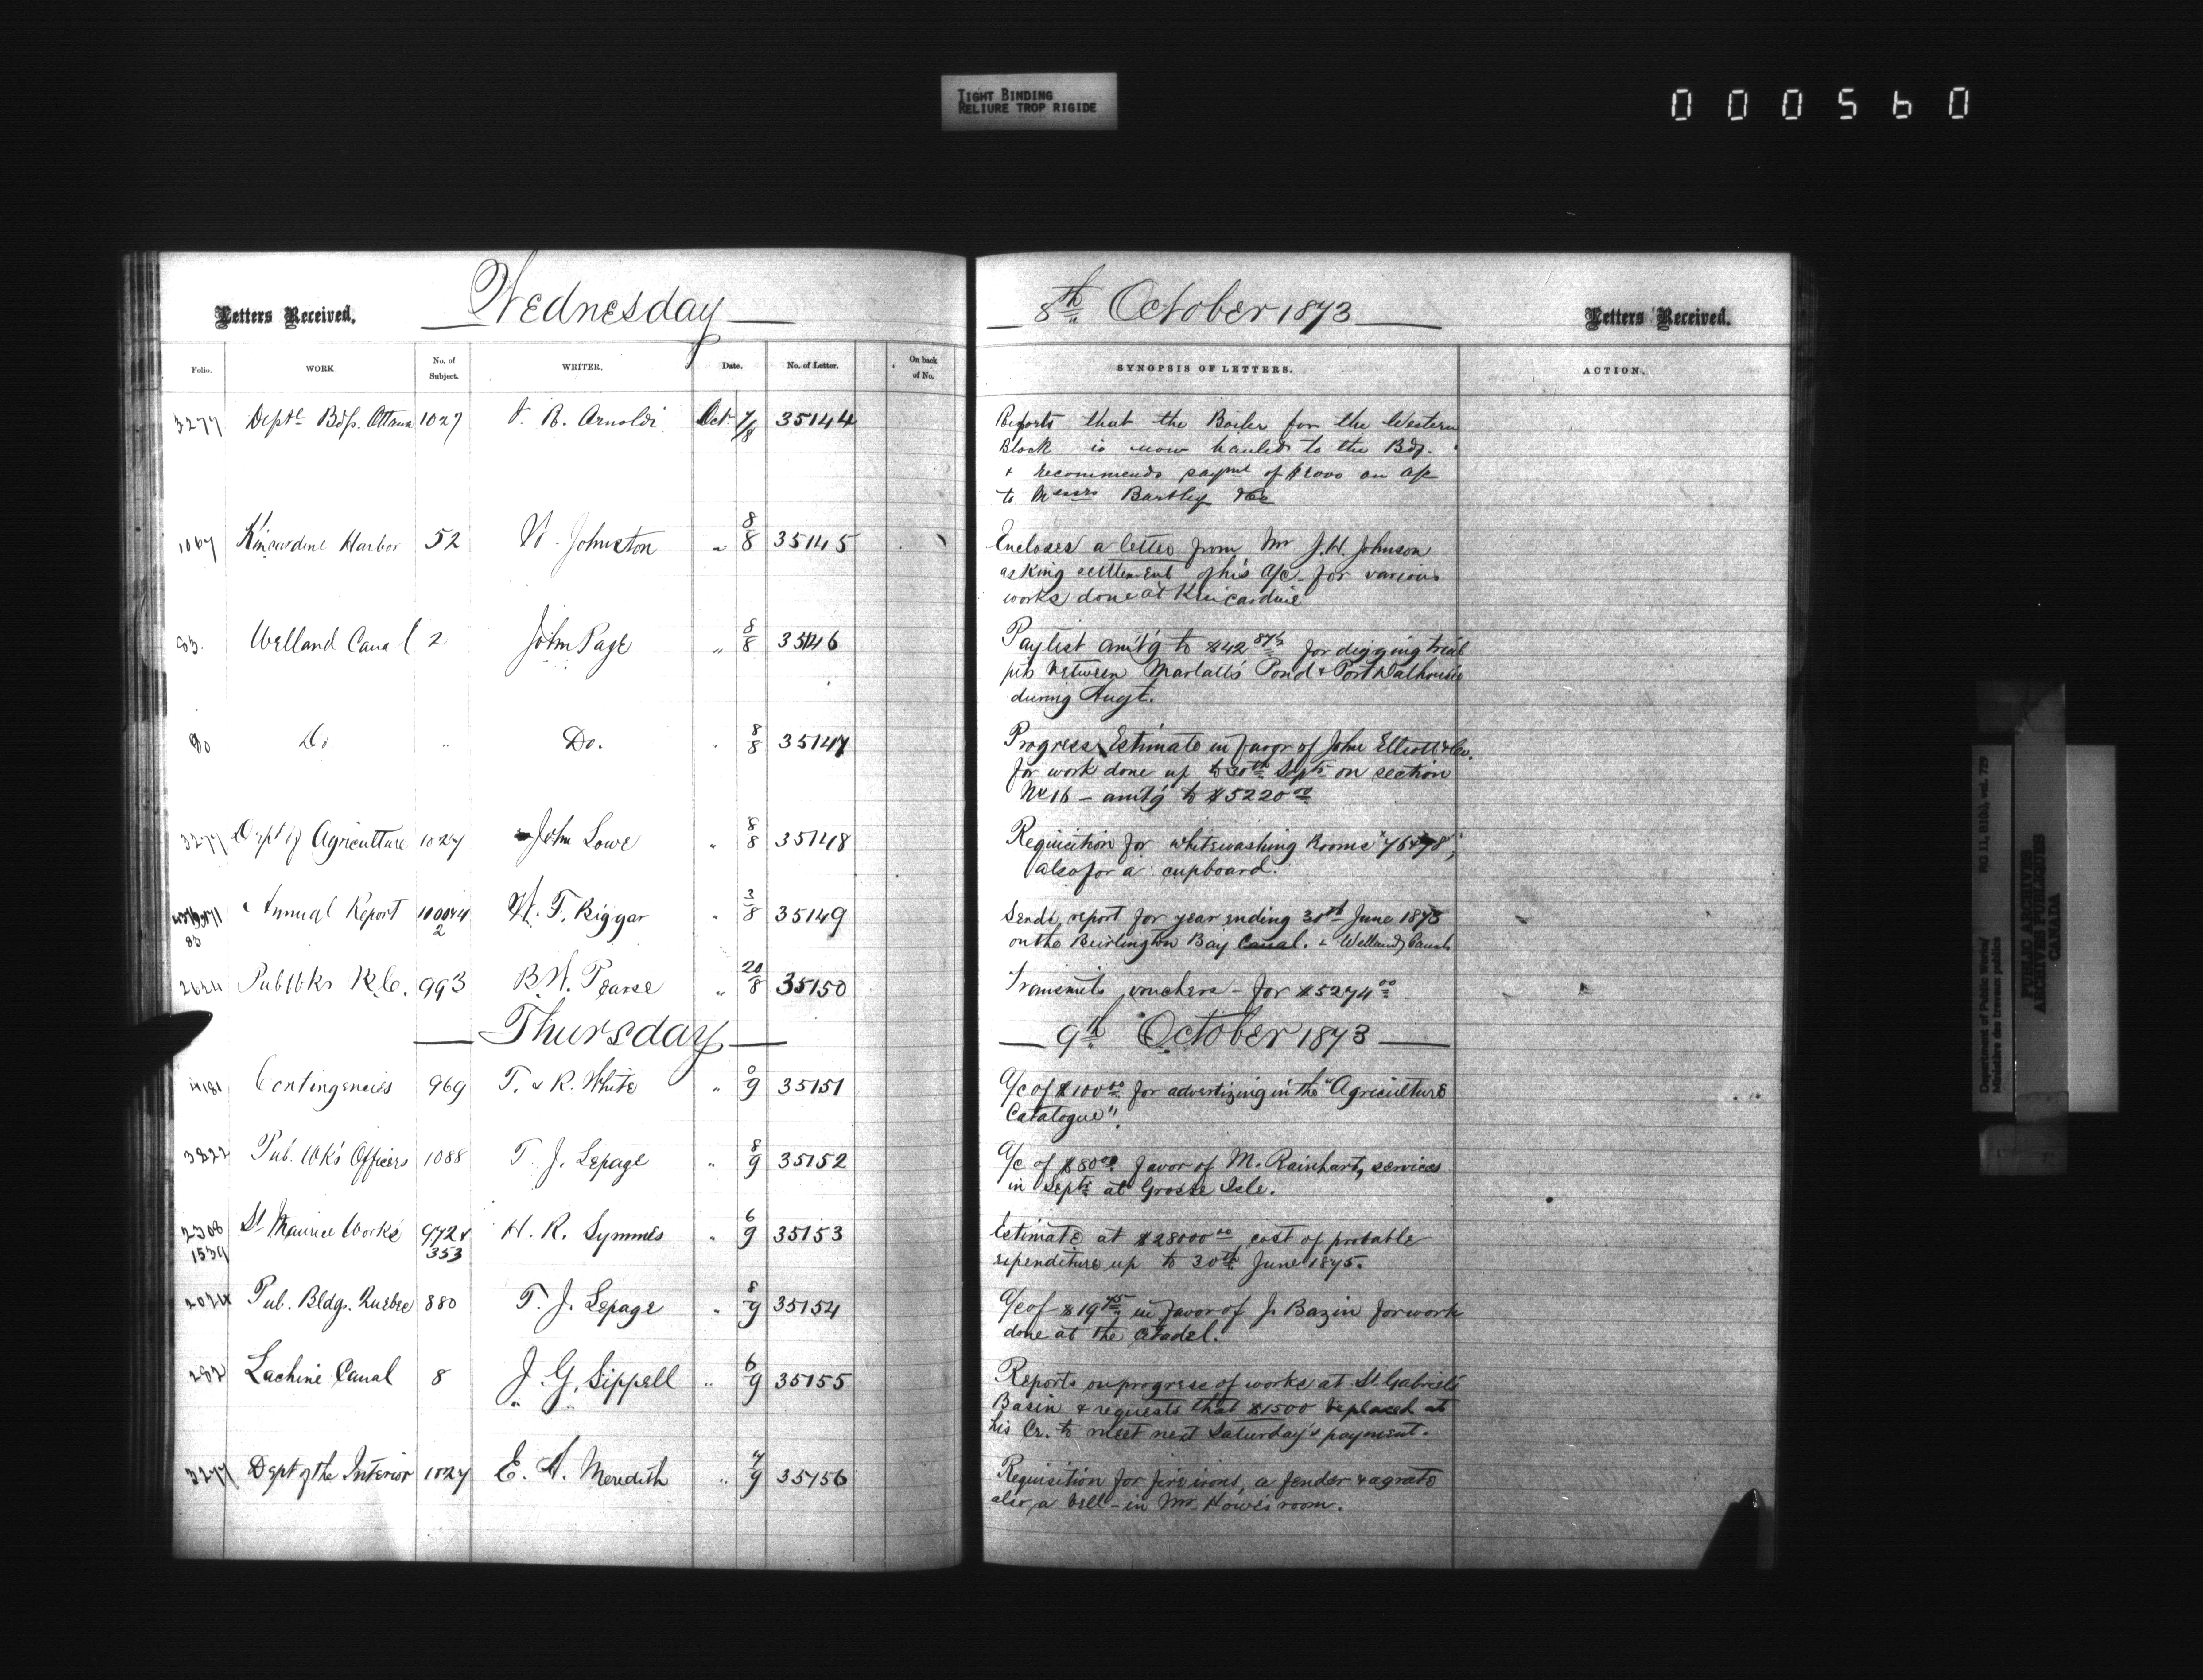 TIGHT BINDING
RELIURE TROP RIGIDE
000560
Letters Received.
Wednesday
Folio. WORK. No. of Subject. WRITER. Date. No. of Letter. On back of No.
3277 Deptl Bdgs. Ottawa 1027 J. R. Arnoldi Oct. 7/8 35144
1067 Kincardine Harbor 52 W. Johnston " 8/8 35145
83. Welland Canal 2 John Page " 8/8 35146
Do " Do. " 8/8 35147
3277 Dept of Agriculture 1027 John Lowe " 8/8 35148
Annual Report W. F. Biggar " 3/8 35149
83 2
2624 Pub Wks B.C. 993 B. W. Pearse " 20/8 35150
Thursday
4181 Contingencies 969 T. & R. White " 9 35151
3822 Pub. Wks Officers 1088 T. J. Lepage " 8/9 35152
2308 St Maurice Works 972 & H. R. Symmes " 6/9 35153
1539 353
2074 Pub. Bldgs. Quebec 880 T. J. Lepage " 8/9 35154
282 Lachine Canal 8 J. G. Sippell " 6/9 35155
3277 Dept of the Interior 1027 E. A. Meredith " 7/9 35156
8th October 1873
Letters Received.
SYNOPSIS OF LETTERS. ACTION.
Reports that the Boiler for the Western
Block is now hauled to the Bdg.
& recommends paymt of $2000 on a/c
to Messrs Bartley & Co
Encloses a letter from Mr J. H. Johnson
asking settlement of his a/c for various
works done at Kincardine
Paylist amt'g to $42 87½ for digging trial
pits between Marlatts Pond & Port Dalhousie
during Augt.
Progress Estimate in favor of John Elliott & Co.
for work done up to 30th Septr on section
No 16 – amt'g to $5220 00
Requisition for whitewashing Rooms "76 & 78",
also for a cupboard.
Sends report for year ending 30th June 1873
on the Burlington Bay Canal. & Welland Canal.
Transmits vouchers – for $5274 00
9th October 1873
a/c of $100 00 for advertizing in the "Agriculture
Catalogue".
a/c of $80 00 favor of M. Rainhart, services
in Septr at Grosse Isle.
Estimate at $28000 00 cost of probable
expenditure up to 30th June 1875.
a/c of $19 75 in favor of J. Bazin for work
done at the Citadel.
Reports on progress of works at St Gabriel's
Basin & requests that $1500 be placed at
his Cr. to meet next Saturday's payment.
Requisition for fire irons, a fender & a grate
also, a bell – in Mr Howe's room.
Department of Public Works/
Ministère des travaux publics
RG 11, B1(b), vol. 729
PUBLIC ARCHIVES
ARCHIVES PUBLIQUES
CANADA